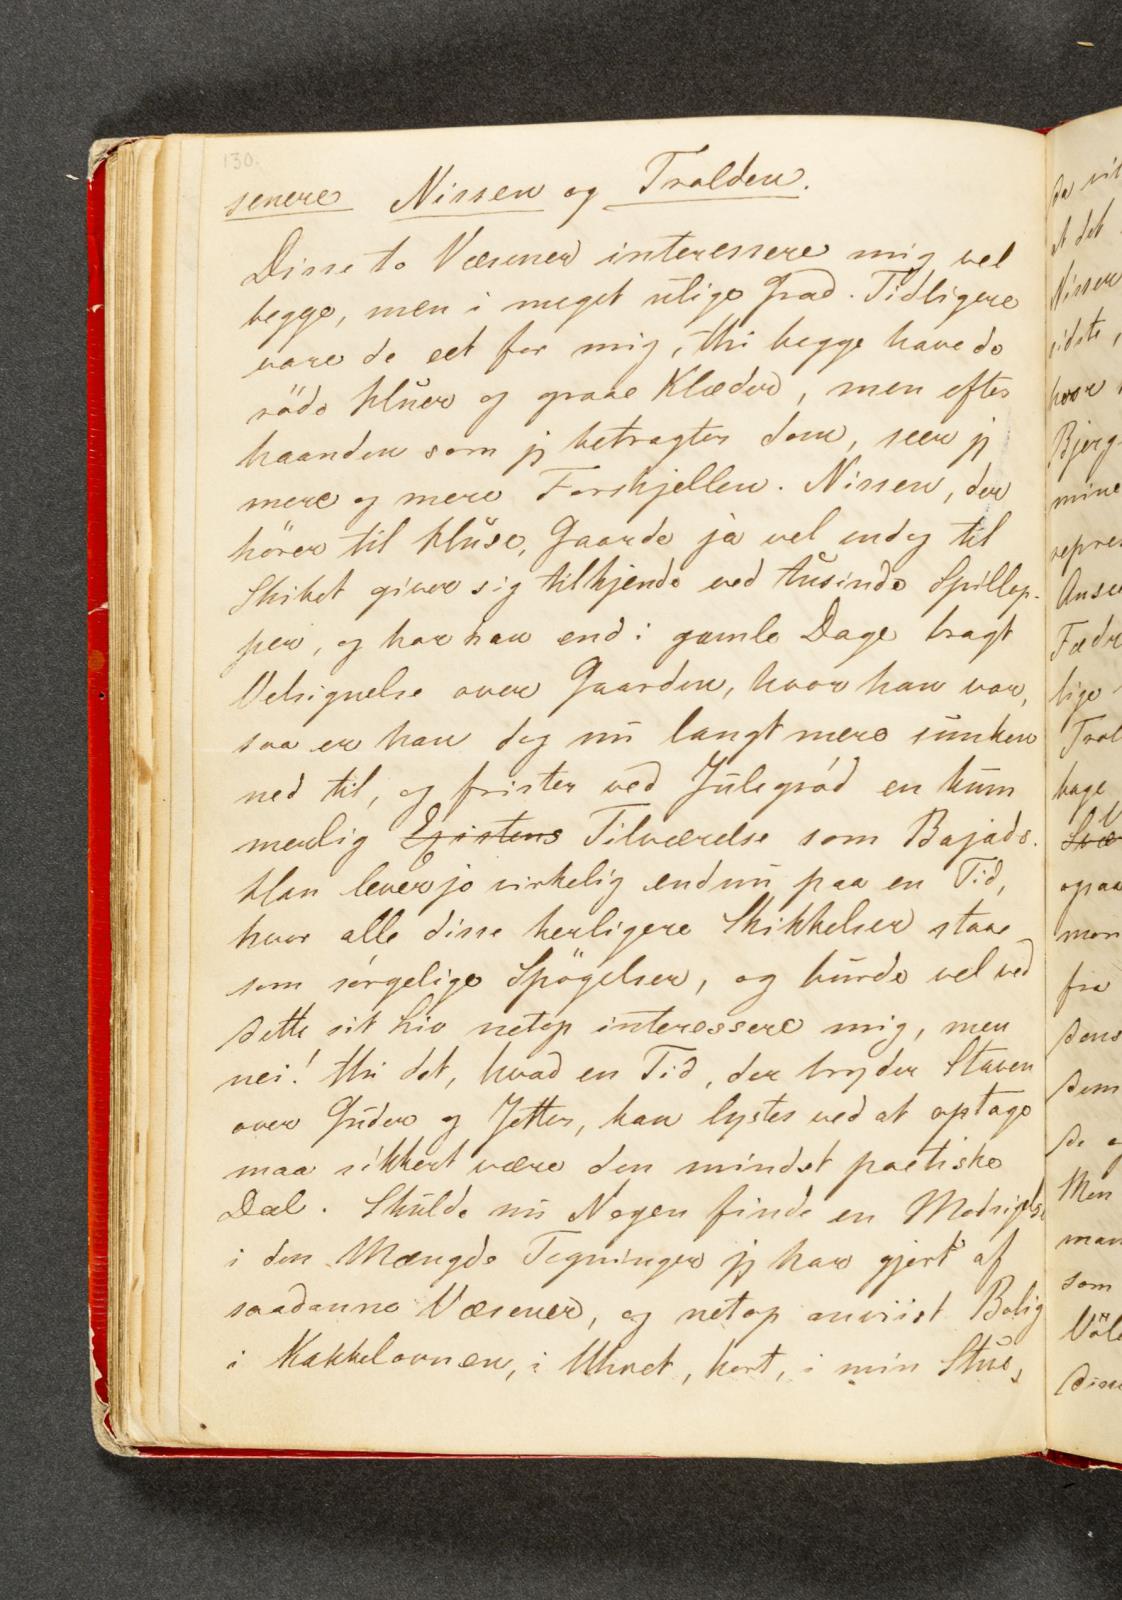 130.
senere Nissen og Trolden.
Disse to Væsener interessere mig vel
begge, men i meget ulige Grad. Tidligere
vare de eet for mig, thi begge have de
röde Huer og graae Klæder, men efter
haanden som jeg betragter dem, seer jeg
mere og mere Forskjellen. Nissen, der
hörer til Huse, Gaarde ja vel endog til
Skibet giver sig tilkjende ved tusinde Spillop-
per, og har han end i gamle Dage bragt
Velsignelse over Gaarden, hvor han var,
saa er han dog nu langt mere sunken
ned til, og frister ved Julegröd en küm
merlig Existens Tilværelse som Bajads.
Han lever jo virkelig endnu paa en Tid,
hvor alle disse herligere Skikkelser staae
som sørgelige Spögelser, og burde vel ved
dette sit Liv netop interessere mig, men
nei! thi det, hvad en Tid, der bryder Staven
over Guder og Jetter, kan lystes ved at optage
maa sikkert være den mindst poetiske
Deel. Skulde nu Nogen finde en Modsigelse
i den Mængde Tegninger jeg har gjort af
saadanne Væsener, og netop anviist Bolig
i Kakkelovnen, i Uhret, kort, i min Stue,
da vil
at det
Nissen
sidste,
hvor
Bjerg-
mine
repræ
Ansee
Fædr
lige
Trol
bage
ogsaa
men
fra
dens
dem
de
Men
man
som
disse